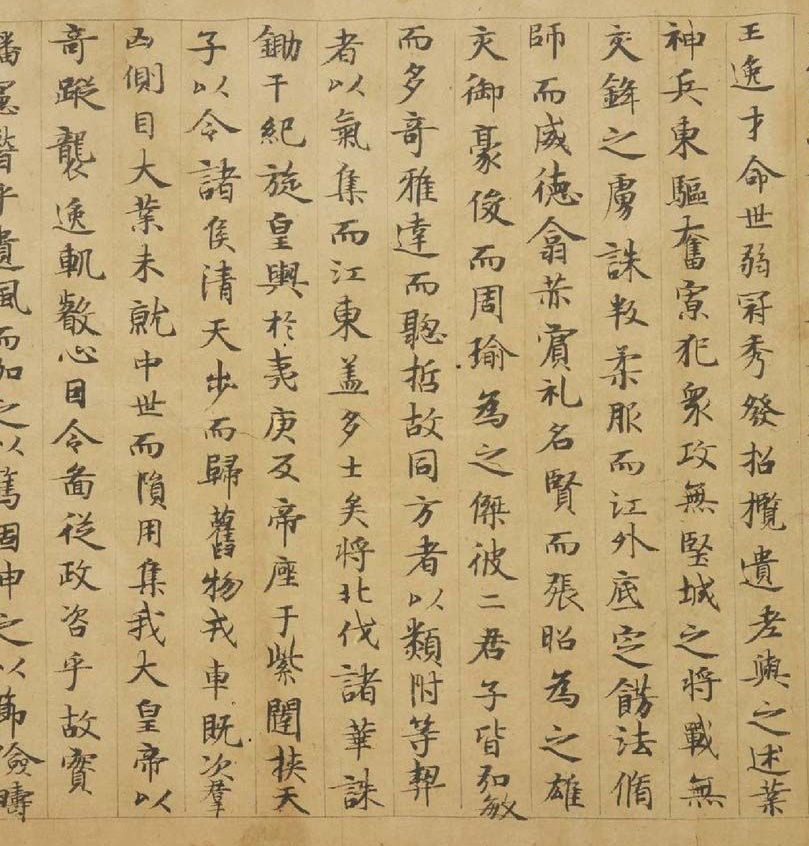 王逸才命世弱冠秀發招攬遺老與之述業
神兵東驅奮寡犯衆攻無堅城之將戰無
交鋒之虜誅叛柔服而江外底定飭法脩
師而威德翕赫賓礼名賢而張昭為之雄
交御豪俊而周瑜為之傑彼二君子皆弘敏
而多奇雅達而聰哲故同方者以類附等契
者以氣集而江東蓋多士矣將北伐諸華誅
鋤干紀旋皇輿於夷庚反帝座于紫闥挾天
子以令諸侯清天步而歸舊物戎車既次羣
凶側目大業未就中世而隕用集我大皇帝以
奇蹤襲逸軌叡心因令啚従政咨乎故實
播憲稽乎遺風而加之以篤固申之以節儉疇